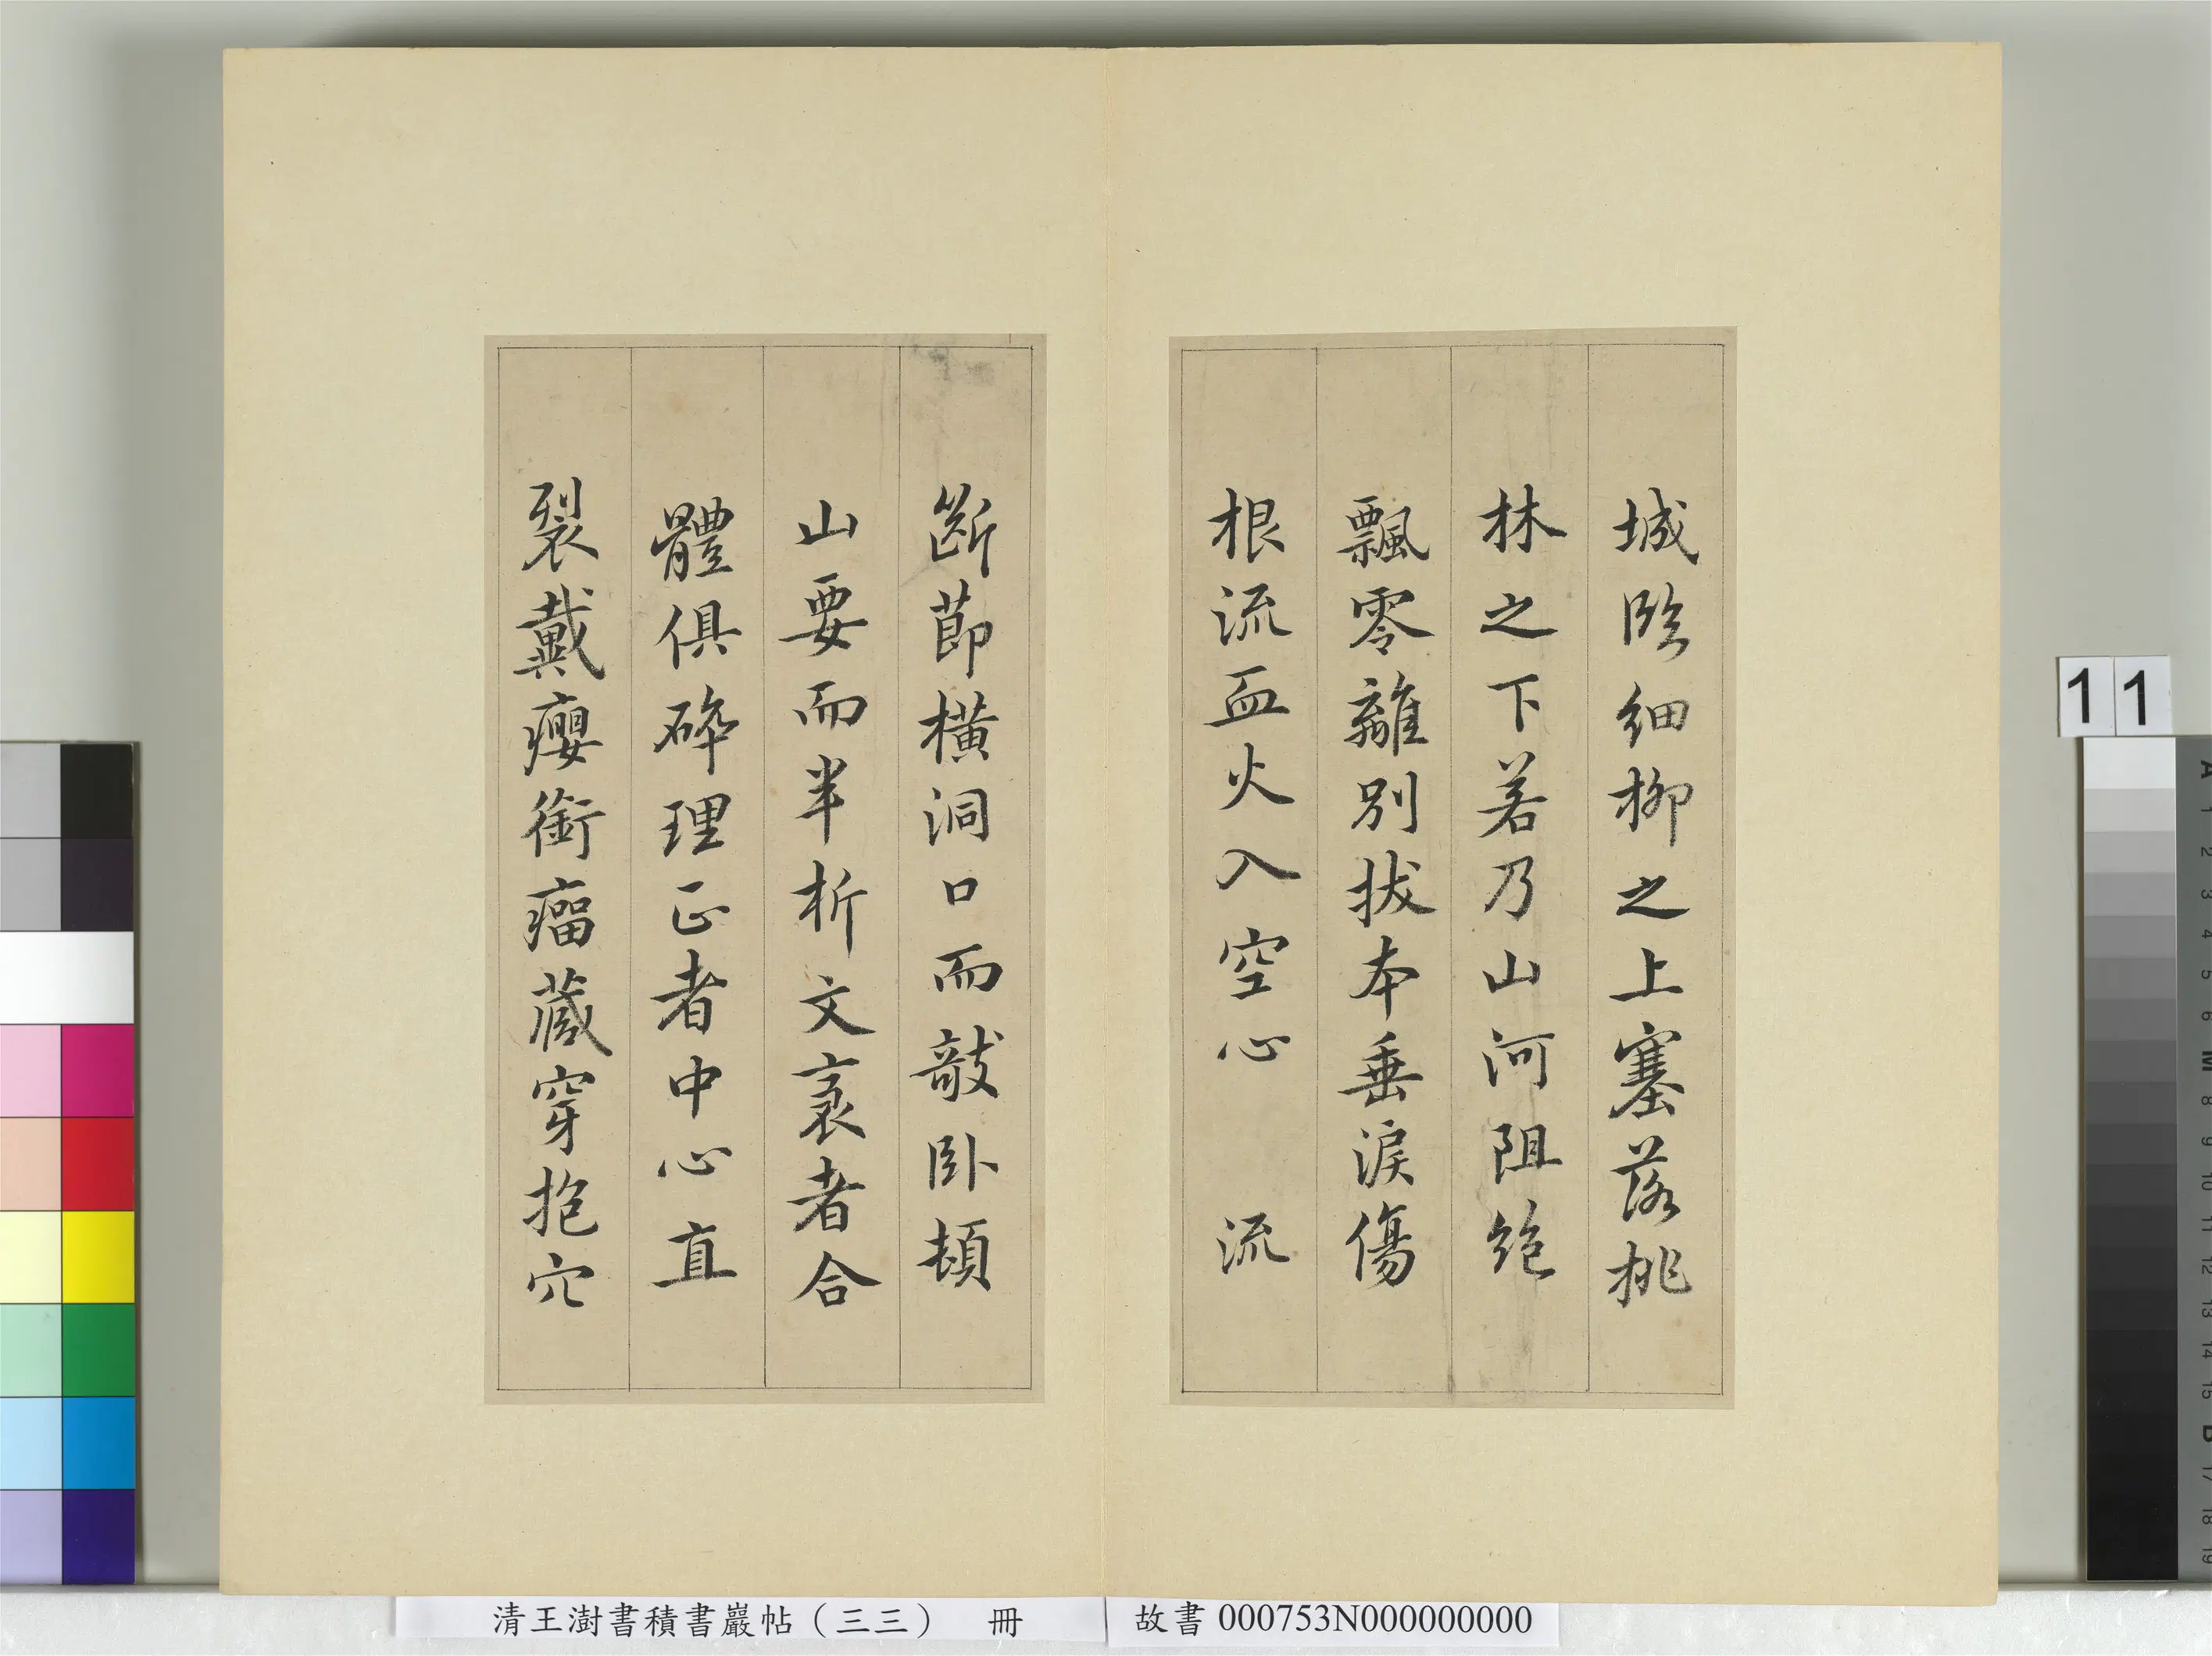 城臨細柳之上塞落桃
林之下若乃山河阻絶
飄零離別拔本垂淚傷
根流血火入空心 流
斷節橫洞口而敧卧頓
山要而半析文袤者合
體俱碎理正者中心直
裂戴癭銜瘤藏穿抱穴
11
清王澍書積書巖帖（三三） 冊
故書000753N000000000